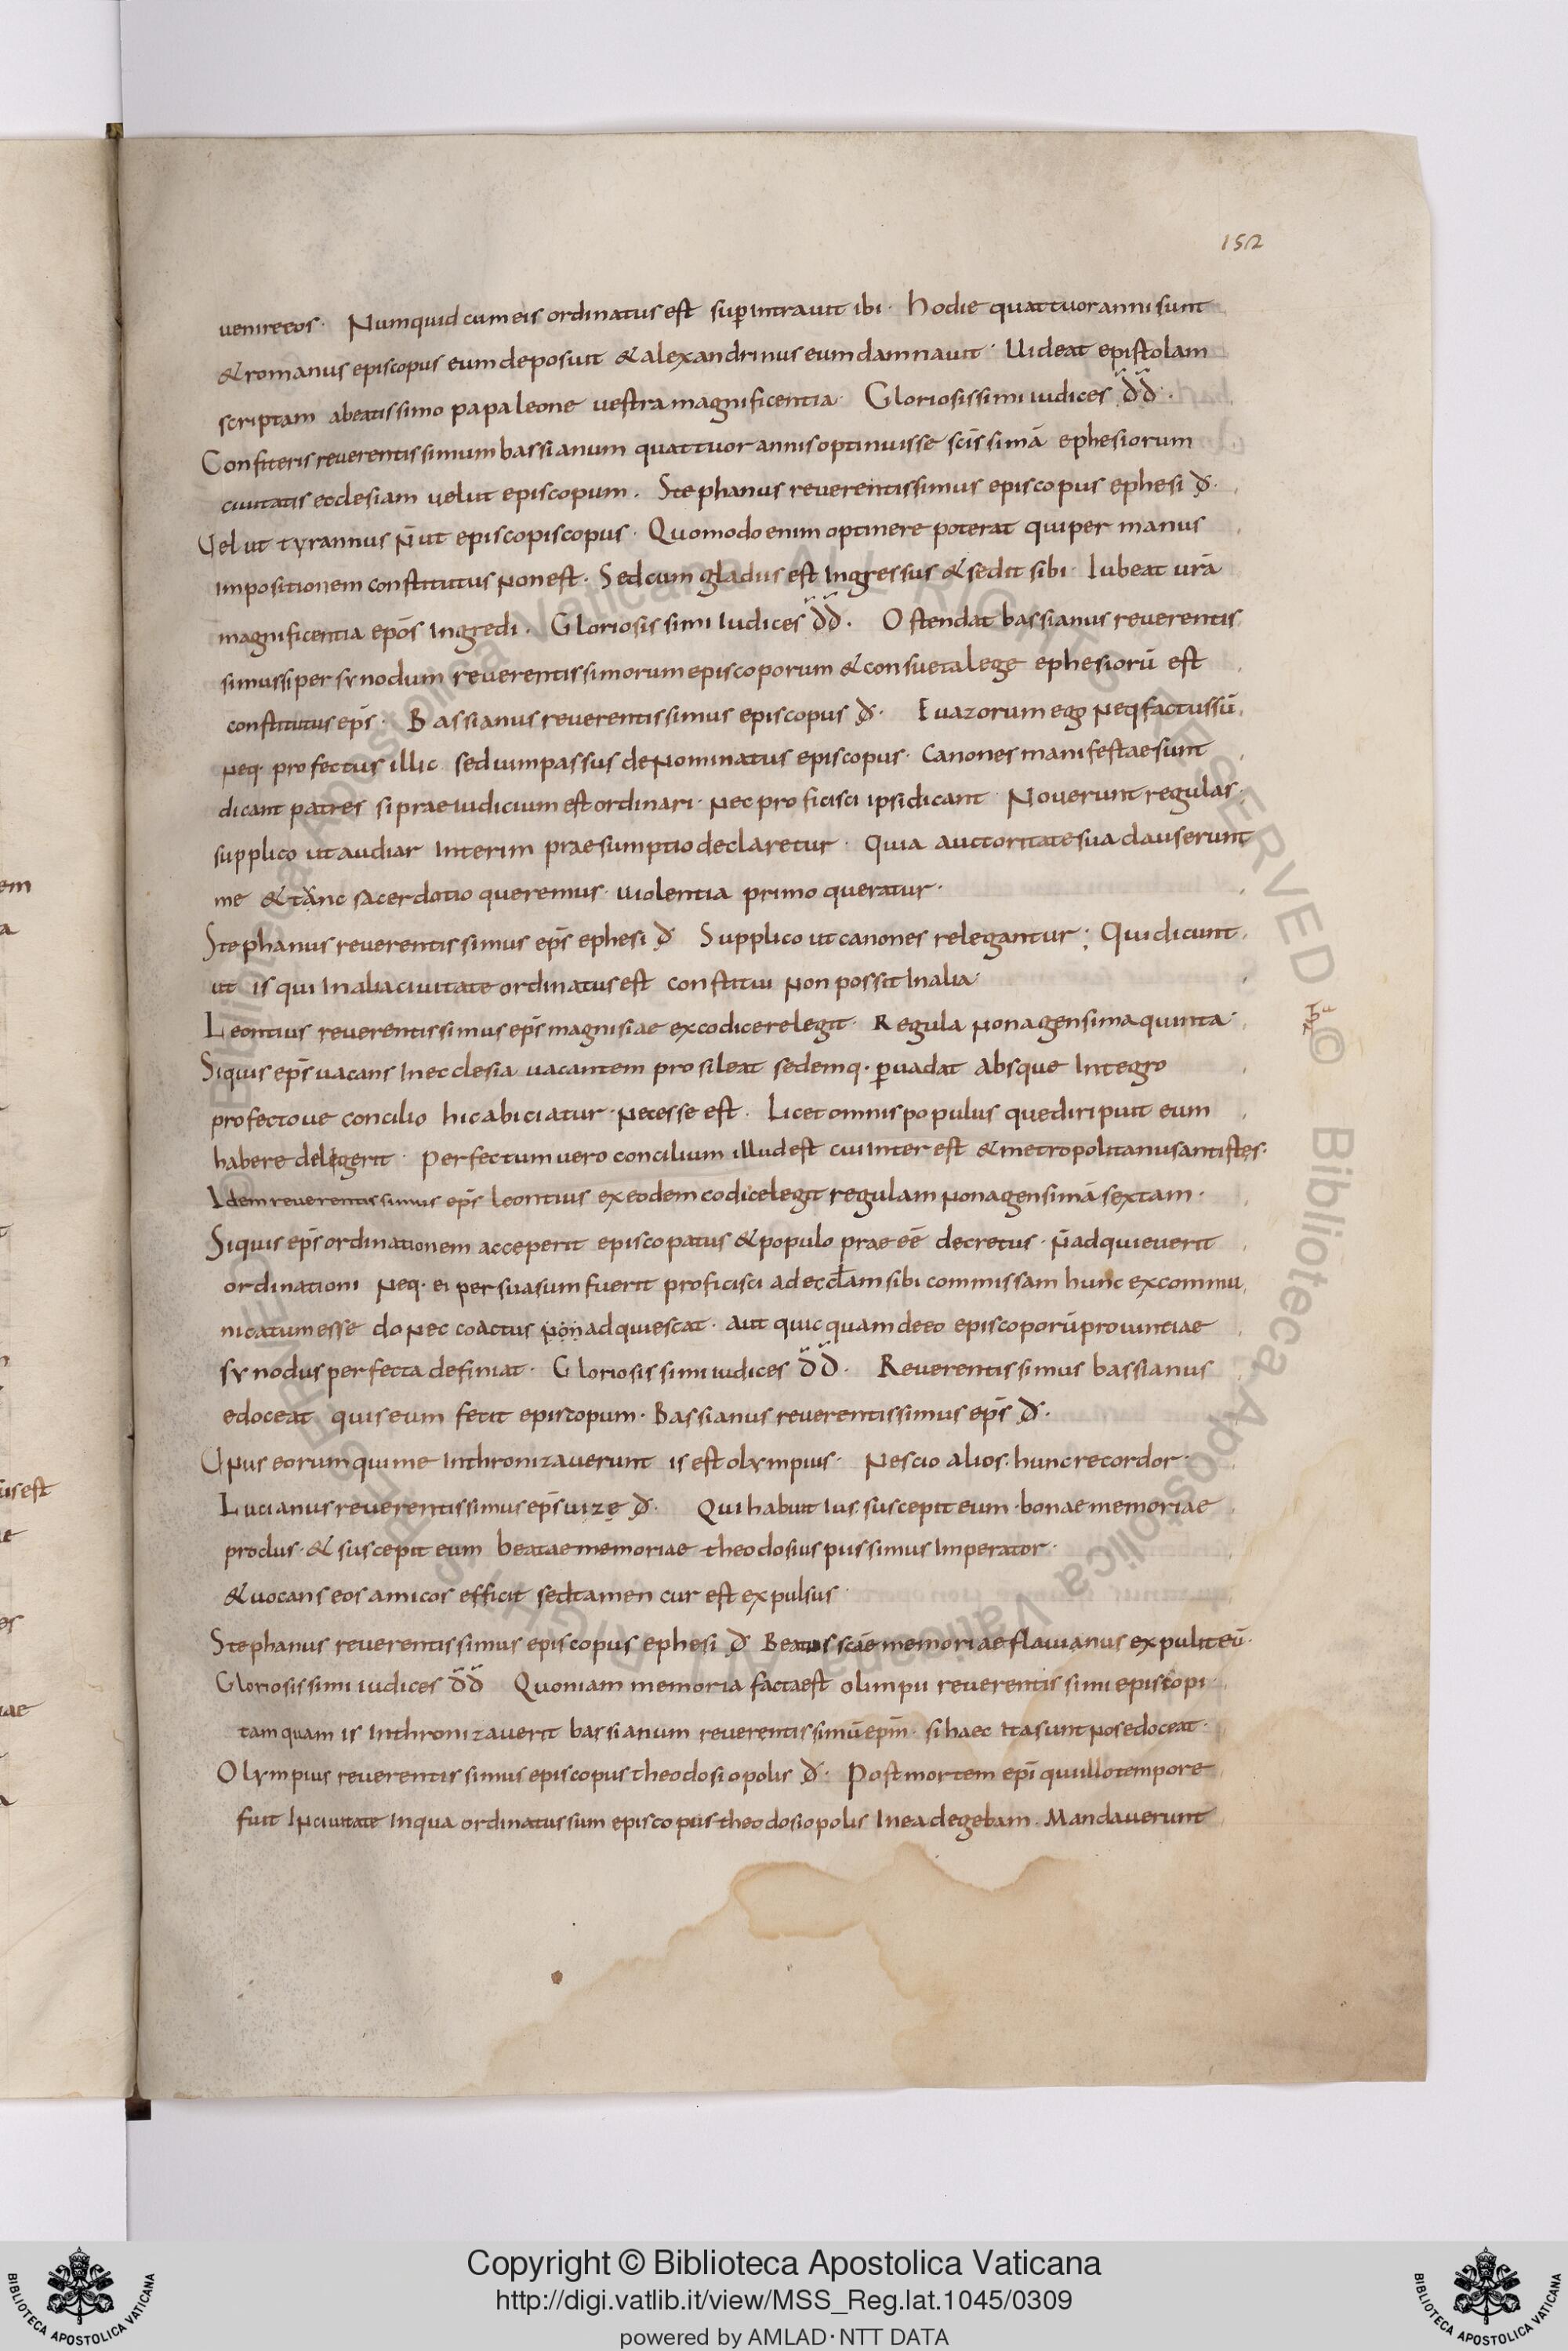 152
uenire eos · Numquid cum eis ordinatus est sup̱ intrauit ibi · hodie quattuor anni sunt
& romanus episcopus eum deposuit & alexandrinus eum damnauit · Uideat epistolam
scriptam abeatissimo papa leone uestra magnificentia · Gloriosissimi iudices d̄d̄ ·
Confiteris reuerentissimum bassianum quattuor annis optinuisse sc̄issimā ephesiorum
ciuitatis ecclesiam uelut episcopum . Stephanus reuerentissimus episcopus ephesi đ ·
Uelut tyrannus n̄ ut episcopiscopus · Quomodo enim optinere poterat qui per manus
impositionem constitutus non est · Sed cum gladiis est Ingressus & sedit sibi · Iubeat ur̄a
magnificentia ep̄os Ingredi . Gloriosissimi Iudices d̄d̄ . Ostendat bassianus reuerentis
simus si per synodum reuerentissimorum episcoporum & consueta lege ephesiorū est
constitutus ep̄s · Bassianus reuerentissimus episcopus đ · Euazorum ego neq; factus sū
neq · profectus illic sed uim passus denominatus episcopus · Canones manifestae sunt
dicant patres si praeiudicium est ordinari · nec proficisci ipsi dicant · Nouerunt regulas ·
supplico ut audiar Interim praesumptio declaretur · Quia auctoritate sua clauserunt
me & tanc sacerdotio queremus · uiolentia primo queratur ·
Stephanus reuerentissimus ep̄s ephesi đ Supplico ut canones relegantur ; Qui dicunt
ut is qui In alia ciuitate ordinatus est constitui non possit In alia ·
Leontius reuerentissimus ep̄s magnisiae ex codice relegit · Regula nonagensima quinta ·
Si quis ep̄s uacans In ecclesia uacantem prosileat sedemq · p̱uadat absque Integro
profectoue concilio hic abiciatur · necesse est . Licet omnis populus que diripuit eum
habere delegerit · Perfectum uero concilium illud est cui Inter est & metropolitanus antistes ·
Idem reuerentissimus ep̄s leontius ex eodem codice legit regulam nonagensimā sextam ·
Si quis ep̄s ordinationem acceperit episcopatus & populo praeeē decretus · n̄ adquieuerit
ordinationi neq · ei persuasum fuerit proficisci ad eccłam sibi commissam hunc excommu
nicatum esse donec coactus non adquiescat · aut quicquam de eo episcoporū prouintiae
synodus perfecta definiat · Gloriosissimi iudices d̄d̄ . Reuerentissimus bassianus
edoceat quis eum fecit episcopum · Bassianus reuerentissimus ep̄s đ ·
Unus eorum qui me Inthronizauerunt is est olympius · Nescio alios . hunc recordor ·
Lucianus reuerentissimus ep̄s uizę đ . Qui habuit Ius . suscepit eum · bonae memoriae
proclus · & suscepit eum beatae memoriae theodosius piissimus Imperator ·
& uocans eos amicos efficit sed tamen cur est expulsus ·
Stephanus reuerentissimus episcopus ephesi đ Beatus sc̄ae memoriae flauianus expulit eū ·
Gloriosissimi iudices d̄d̄ Quoniam memoria facta est olimpii reuerentissimi episcopi ·
tamquam is Inthronizauerit bassianum reuerentissimū ep̄m · si haec Ita sunt nos edoceat ·
Olympius reuerentissimus episcopus theodosiopolis đ · Post mortem ep̄i qui illo tempore
fuit In ciuitate In qua ordinatus sum episcopus theodosiopolis In ea degebam . Mandauerunt
Copyright © Biblioteca Apostolica Vaticana
http://digi.vatlib.it/view/MSS_Reg.lat.1045/0309
powered by AMLAD·NTT DATA